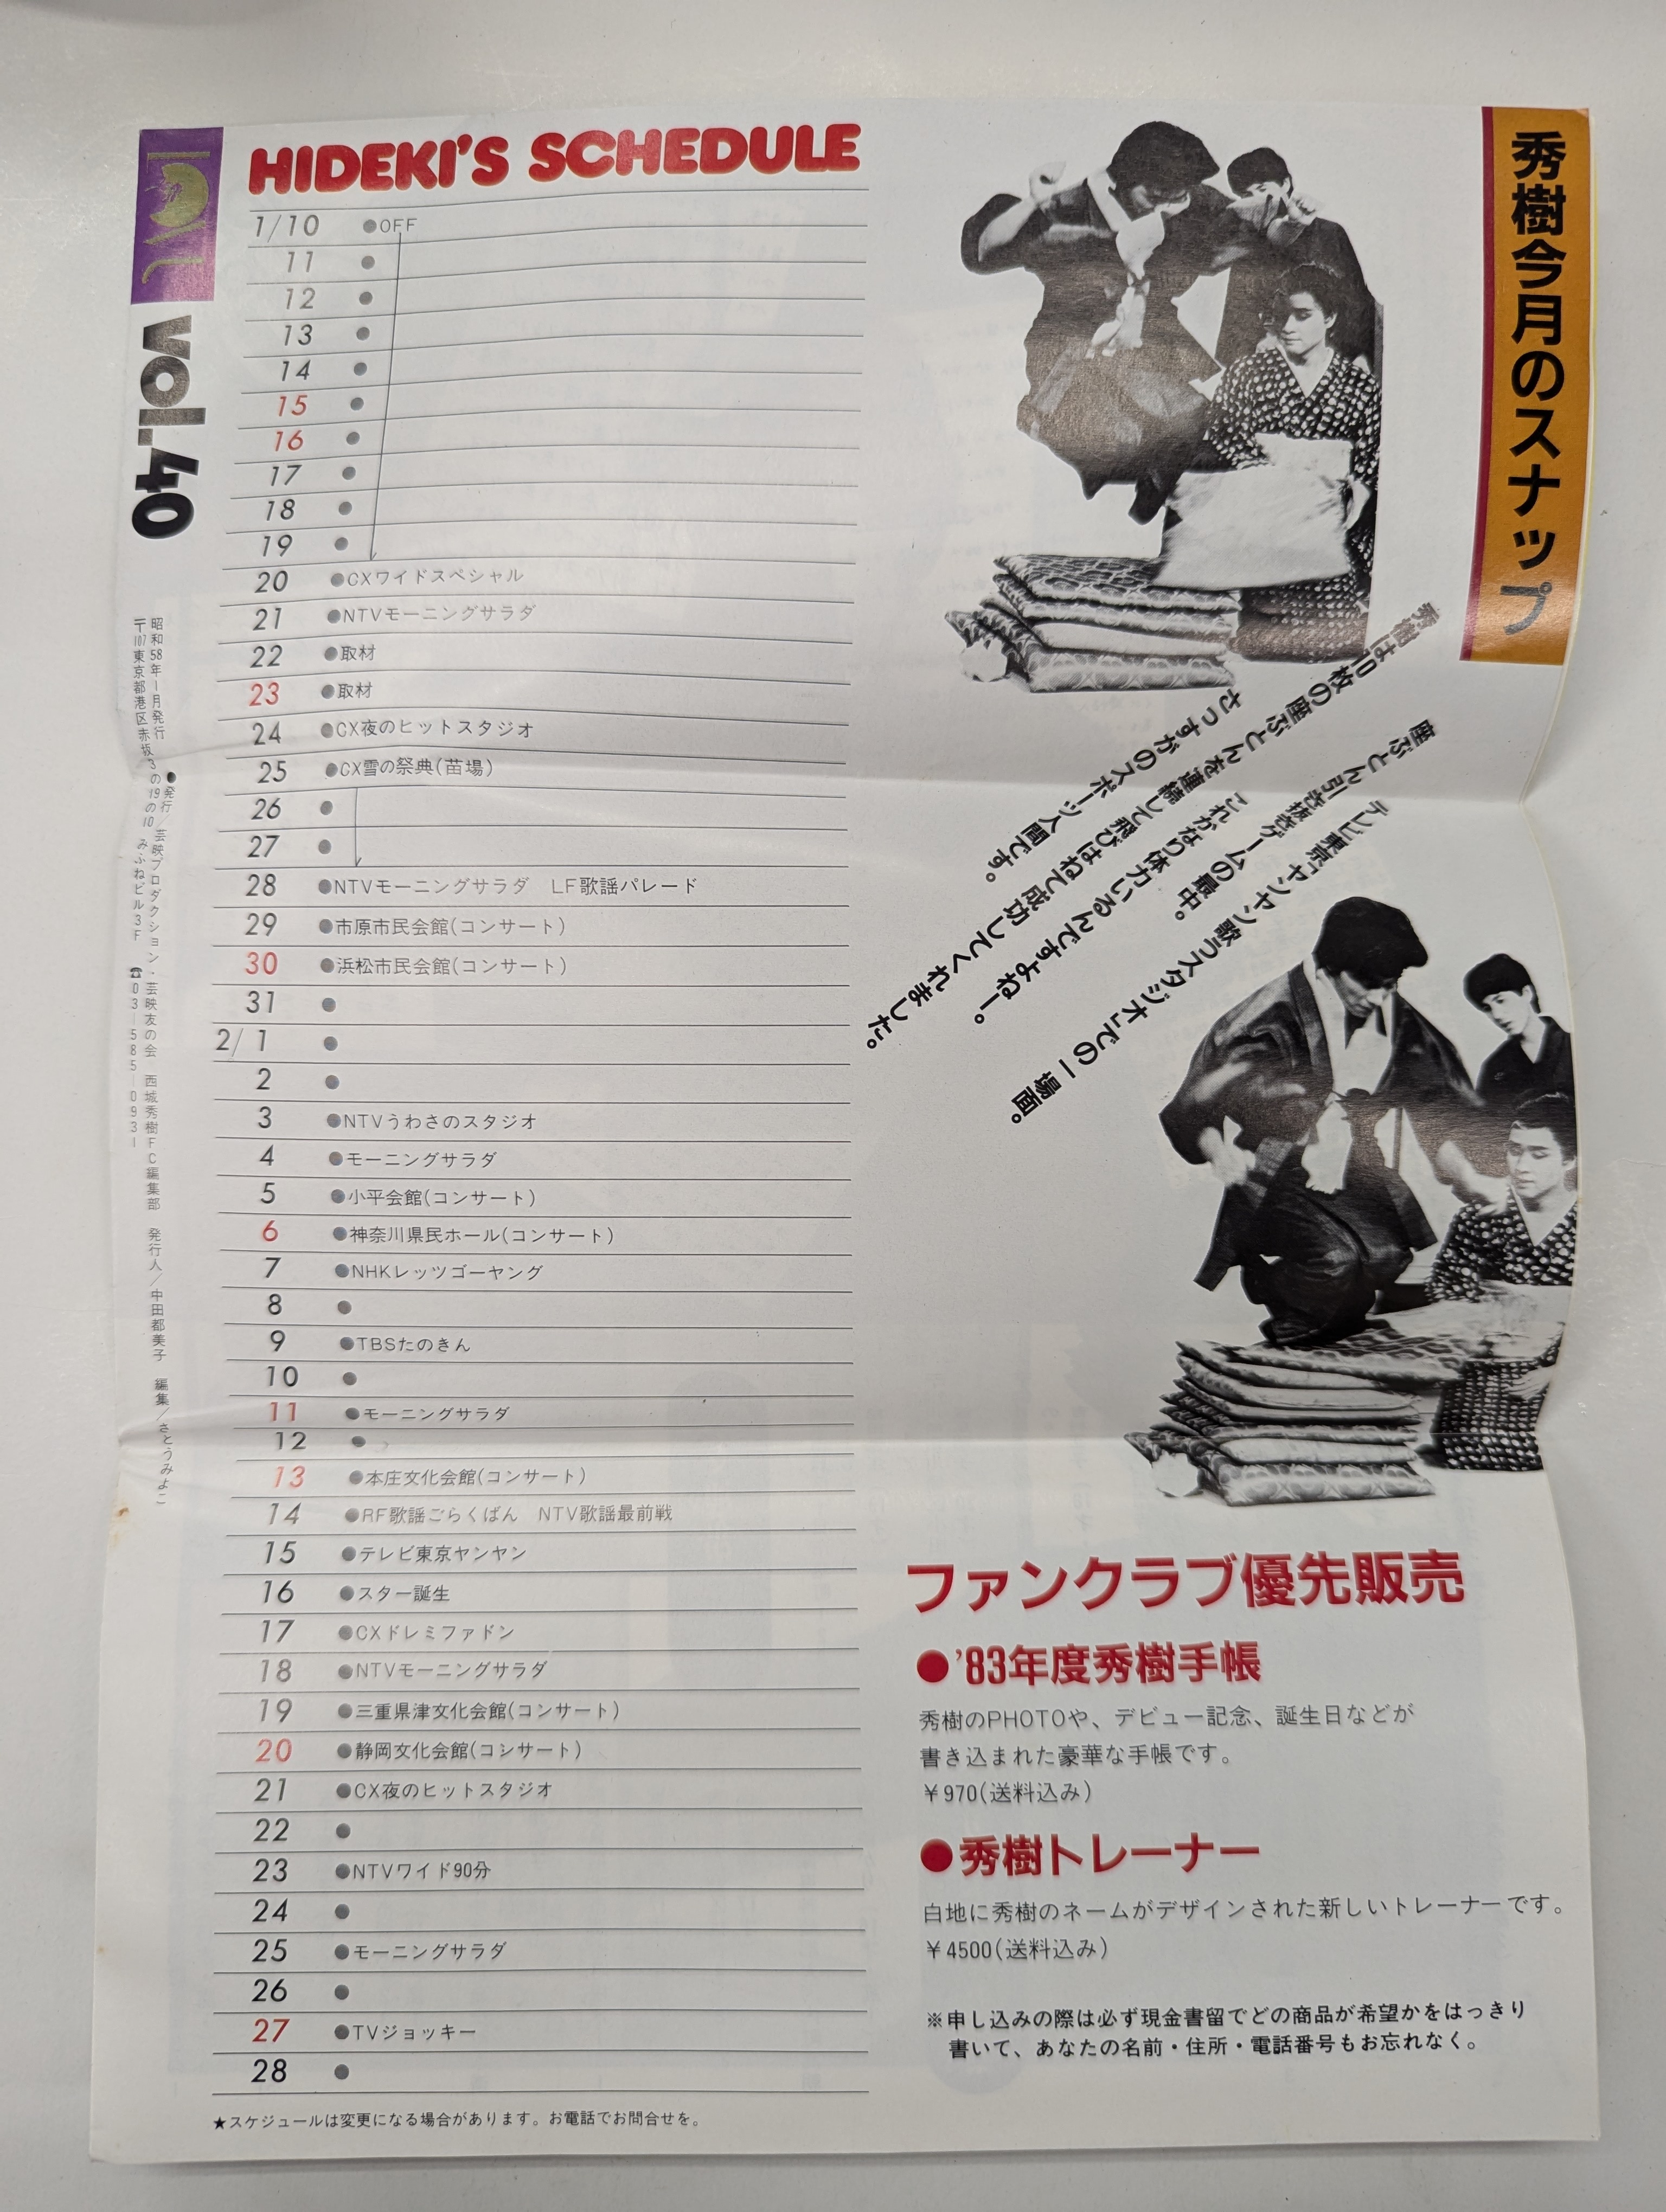 HIDEKI'S SCHEDULE
1/10 ●OFF
11 ●
12 ●
13 ●
14 ●
15 ●
16 ●
17 ●
18 ●
19 ●
20 ●CXワイドスペシャル
21 ●NTVモーニングサラダ
22 ●取材
23 ●取材
24 ●CX夜のヒットスタジオ
25 ●CX雪の祭典(苗場)
26 ●
27 ●
28 ●NTVモーニングサラダ　LF歌謡パレード
29 ●市原市民会館(コンサート)
30 ●浜松市民会館(コンサート)
31 ●
2/1 ●
2 ●
3 ●NTVうわさのスタジオ
4 ●モーニングサラダ
5 ●小平会館(コンサート)
6 ●神奈川県民ホール(コンサート)
7 ●NHKレッツゴーヤング
8 ●
9 ●TBSたのきん
10 ●
11 ●モーニングサラダ
12 ●
13 ●本庄文化会館(コンサート)
14 ●RF歌謡ごらくばん　NTV歌謡最前戦
15 ●テレビ東京ヤンヤン
16 ●スター誕生
17 ●CXドレミファドン
18 ●NTVモーニングサラダ
19 ●三重県津文化会館(コンサート)
20 ●静岡文化会館(コンサート)
21 ●CX夜のヒットスタジオ
22 ●
23 ●NTVワイド90分
24 ●
25 ●モーニングサラダ
26 ●
27 ●TVジョッキー
28 ●
★スケジュールは変更になる場合があります。お電話でお問合せを。
vol.40
昭和58年1月発行　●発行/芸映プロダクション・芸映友の会　西城秀樹FC編集部　発行人/中田都美子　編集/さとうみよこ
〒107東京都港区赤坂3の19の10 みふねビル3F　☎03-585-0931
秀樹今月のスナップ
テレビ東京“ヤンヤン歌うスタジオ”での一場面。
座ぶとん引き抜きゲームの最中。
これかなり体力いるんですよねー。
秀樹は10枚の座ぶとんを連続して飛びはねて成功してくれました。
さっすがのスポーツ人間です。
ファンクラブ優先販売
●'83年度秀樹手帳
秀樹のPHOTOや、デビュー記念、誕生日などが
書き込まれた豪華な手帳です。
￥970(送料込み)
●秀樹トレーナー
白地に秀樹のネームがデザインされた新しいトレーナーです。
￥4500(送料込み)
※申し込みの際は必ず現金書留でどの商品が希望かをはっきり
書いて、あなたの名前・住所・電話番号もお忘れなく。